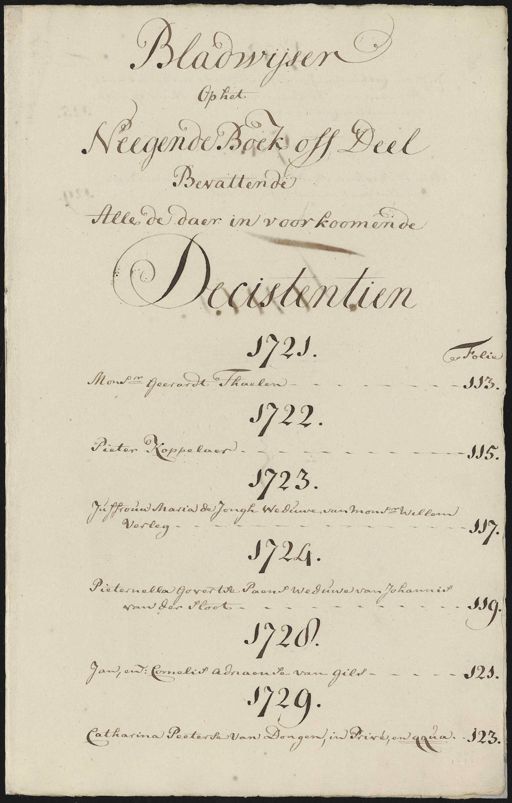 Bladwijser
Op het
Neegende Boek off Deel
Bevattende
Alle de daer in voorkoomende
Decistentien
1721.
Folio
Monsr. Geerardt Thaelen 113.
1722.
Pieter Koppelaer 115.
1723.
Juffrouw Maria de Jongh Weduwe van Monsr. Willem
Verleg 117.
1724.
Pieternella Goverts Paens Weduwe van Johannis
van der Sloot 119.
1728.
Jan, en: Cornelis Adriaense van Gils 121.
1729.
Catharina Peeterse van Dongen, in Privé, en qqua. 123.